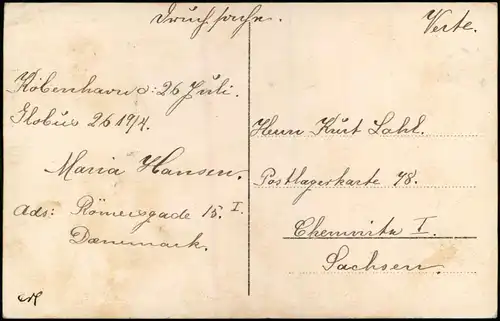 Drucksache.
Verte.
København d: 26 Juli.
Globus 26 1914.
Maria Hansen.
Ads: Römersgade 15. I.
Dænemark.
Herrn Kurt Lahl.
Postlagerkarte 48.
Chemnitz I.
Sachsen.